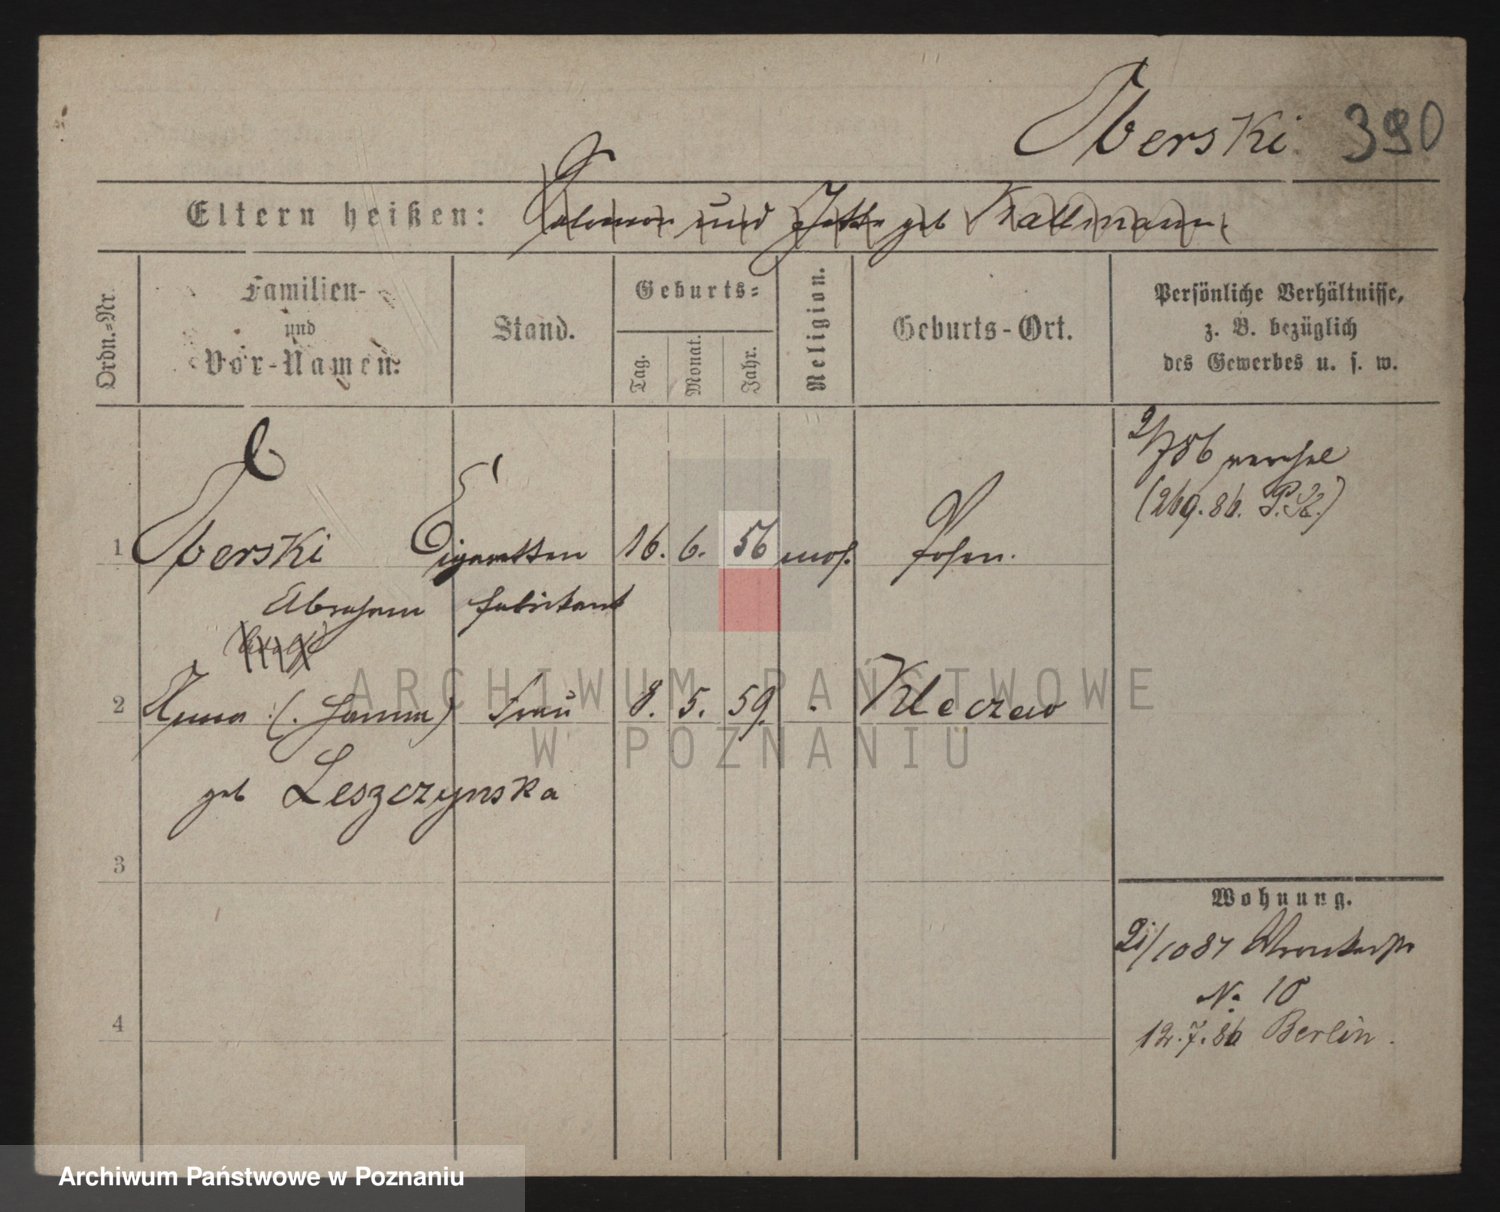 Oberski 390
Eltern heißen: Salomon und Jette geb Kallmann.
Ordn.-Nr.
Familien-
und
Vor-Namen:
Stand.
Geburts-
Tag.
Monat.
Jahr.
Religion.
Geburts-Ort.
Persönliche Verhältnisse,
z. B. bezüglich
des Gewerbes u. s. w.
1 Oberski Cigaretten 16. 6. 56 mos. Posen.
Abraham fabrikant
2 (. Hanna) Frau 8. 5. 59. Kleczew
geb Leszczynska
3
4
2/7 86
(269.86.
Wohnung.
21/10 87 Wronkerstr
No 10
12.7.86 Berlin.
ARCHIWUM PAŃSTWOWE
W POZNANIU
Archiwum Państwowe w Poznaniu